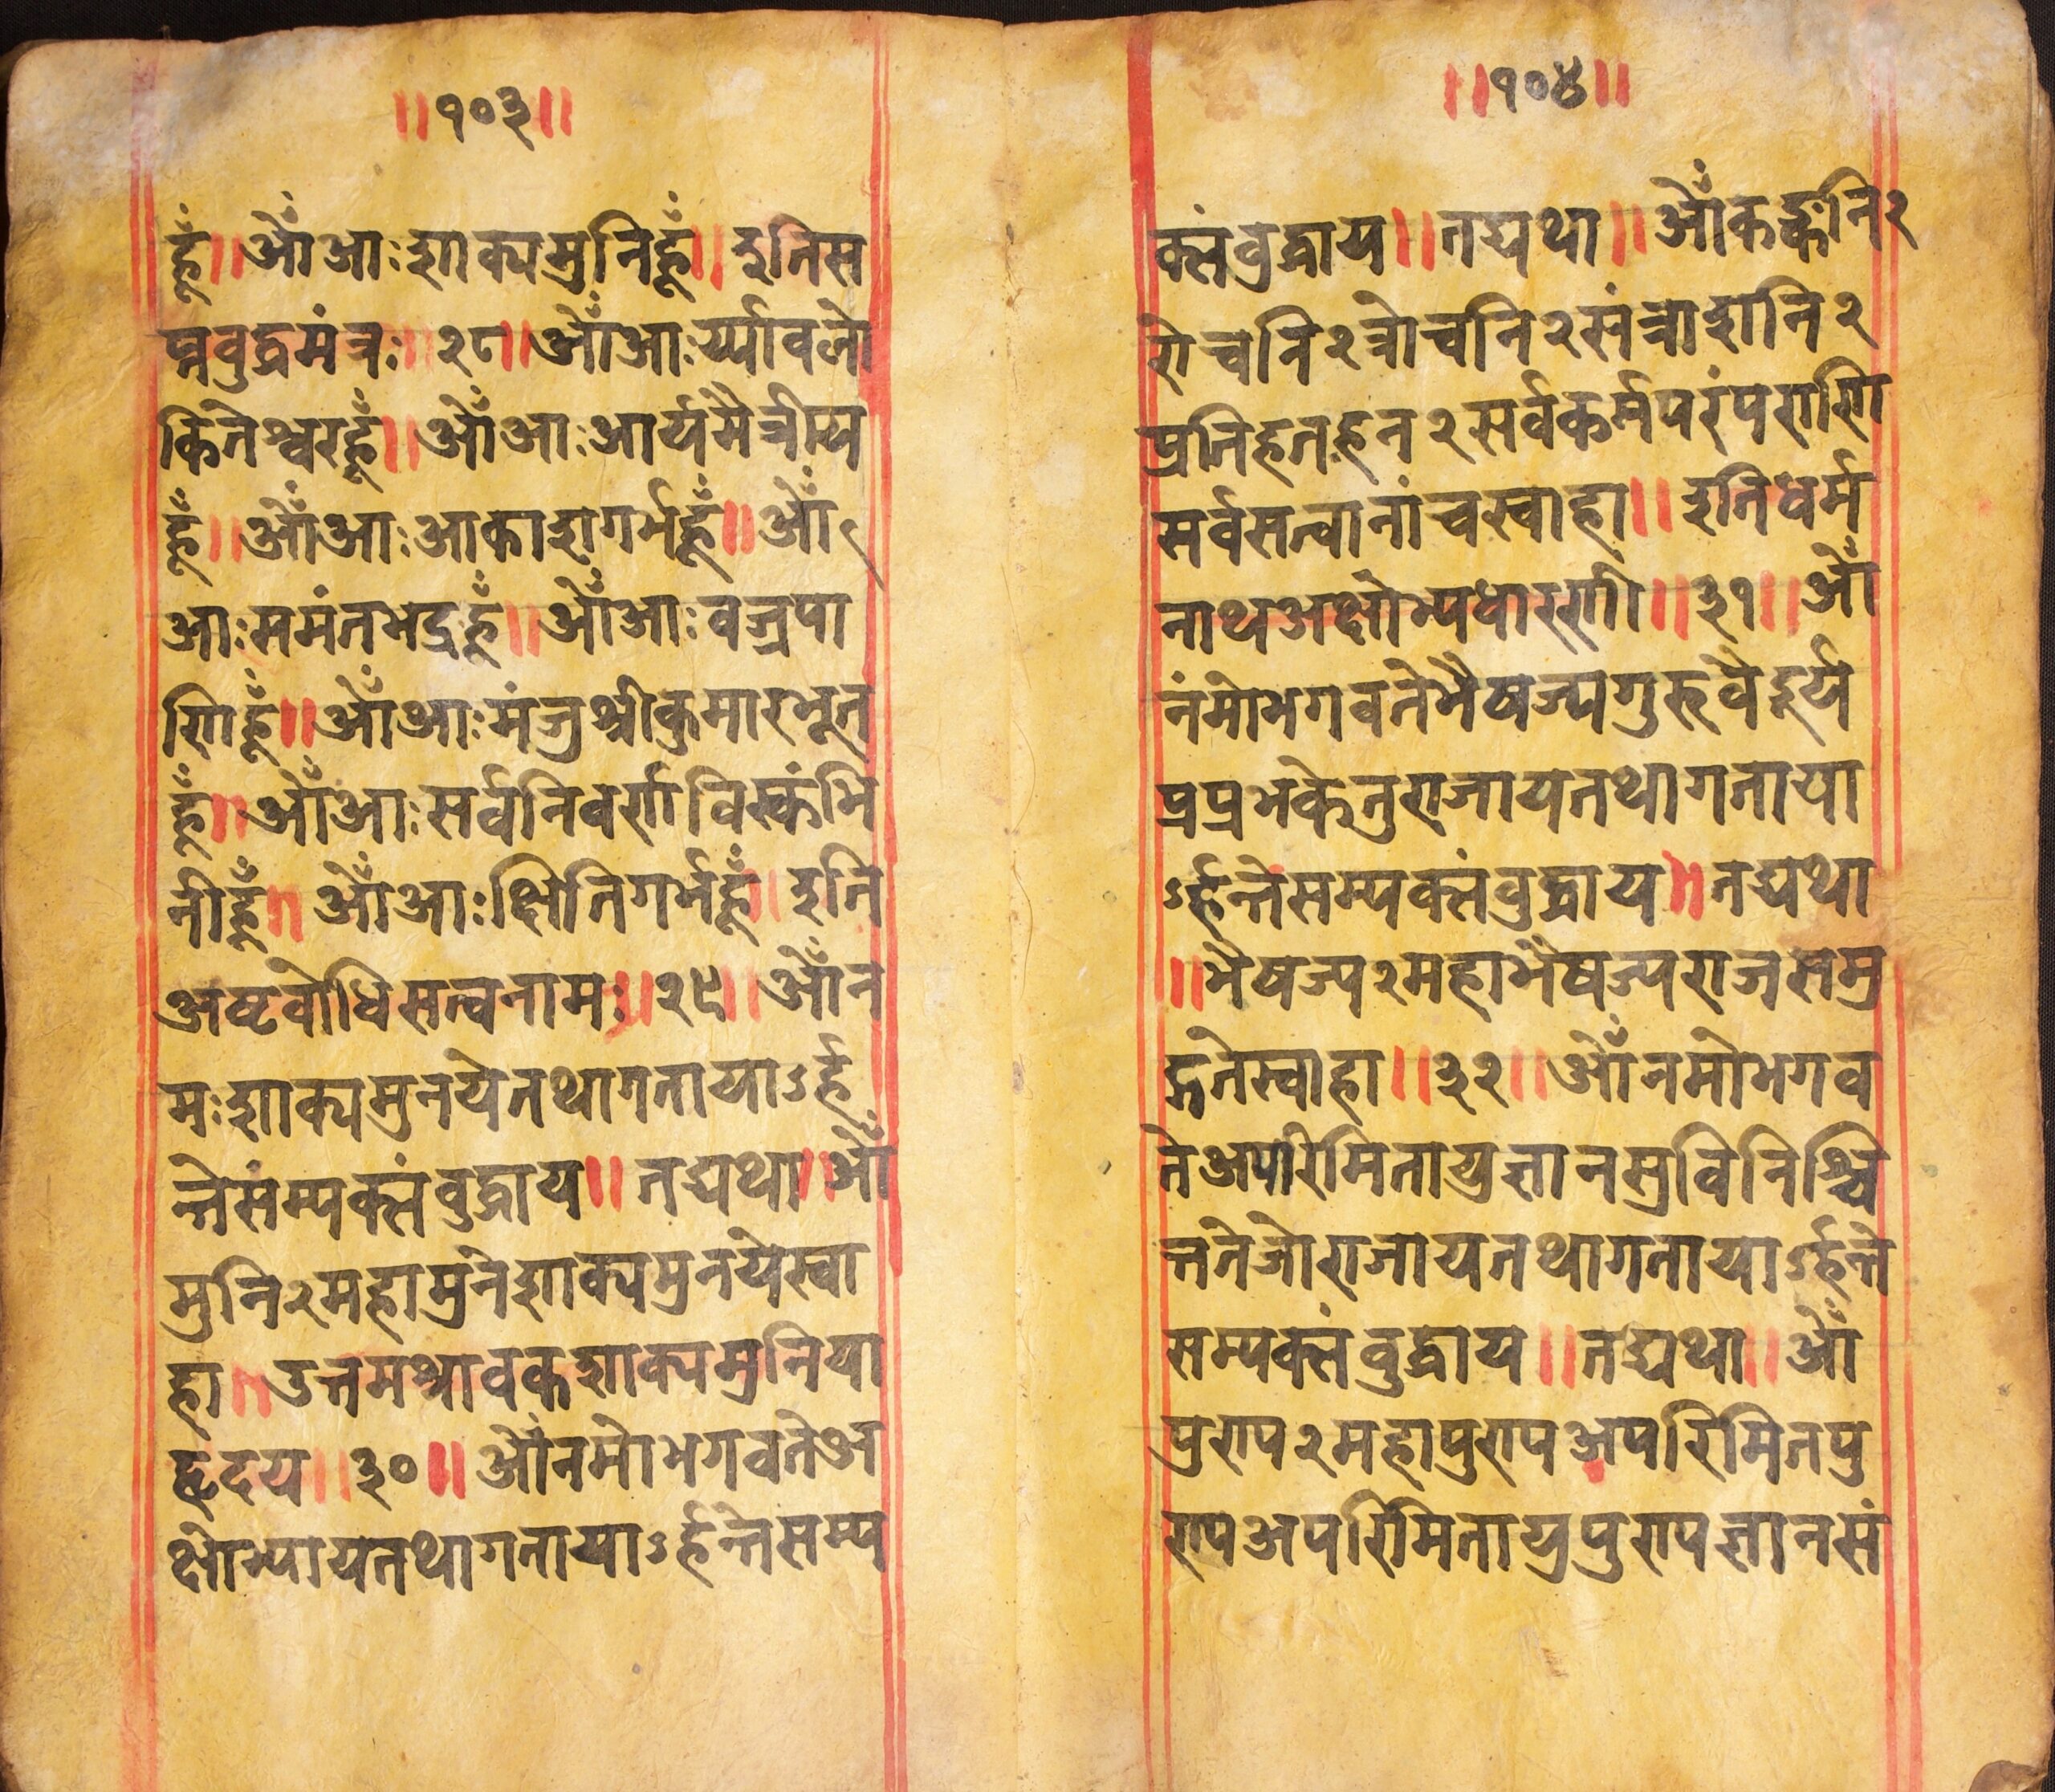 ॥१०३॥
हूँ॥ओँआःशाक्यमुनिहूँ॥इतिस
प्तबुद्धमंत्रः॥२८॥ओँआःर्य्यावलो
कितेश्वरहूँ॥ओँआःआर्यमैत्रीय
हूँ॥ओँआःआकाशगर्भहूँ॥ओँ
आःसमंतभद्रहूँ॥ओँआःवज्रपा
णिहूँ॥ओँआःमंजुश्रीकुमारभूत
हूँ॥ओँआःसर्वनिवर्णाविस्कंभि
नीहूँ॥ओँआःक्षितिगर्भहूँ॥इति
अष्टवोधिसत्वनामः॥२९॥ओँन
मःशाक्यमुनयेतथागतायाऽर्ह
न्तेसंम्यक्संवुद्धाय॥तद्यथा॥ओँ
मुनि२महामुनेशाक्यमुनयेस्वा
हा॥उत्तमश्रावकशाक्यमुनिया
हृदय॥३०॥ओँनमोभगवतेअ
क्षोभ्यायतथागतायाऽर्हन्तेसम्य
॥१०४॥
क्संवुद्धाय॥तद्यथा॥ओँकङ्कनि२
रोचनि२त्रोचनि२संत्राशनि२
प्रतिहतहन२सर्वकर्मपरंपराणि
सर्वसत्वानांचस्वाहा॥इतिधर्म
नाथअक्षोभ्यधारणी॥३१॥ओँ
नंमोभगवतेभैषज्यगुरुवैडूर्य
प्रप्रभकेतुराजायतथागताया
ऽर्हन्तेसम्यक्संवुद्धाय॥तद्यथा
॥भैषज्य२महाभैषज्यराजसमु
द्गतेस्वाहा॥३२॥ओँनमोभगव
तेअपरिमितायुज्ञानसुविनिश्चि
त्ततेजोराजायतथागतायाऽर्हन्ते
सम्यक्संवुद्धाय॥तद्यथा॥ओँ
पुराप२महापुरापअपरिमितपु
रापअपरिमितायुपुरापज्ञानसं